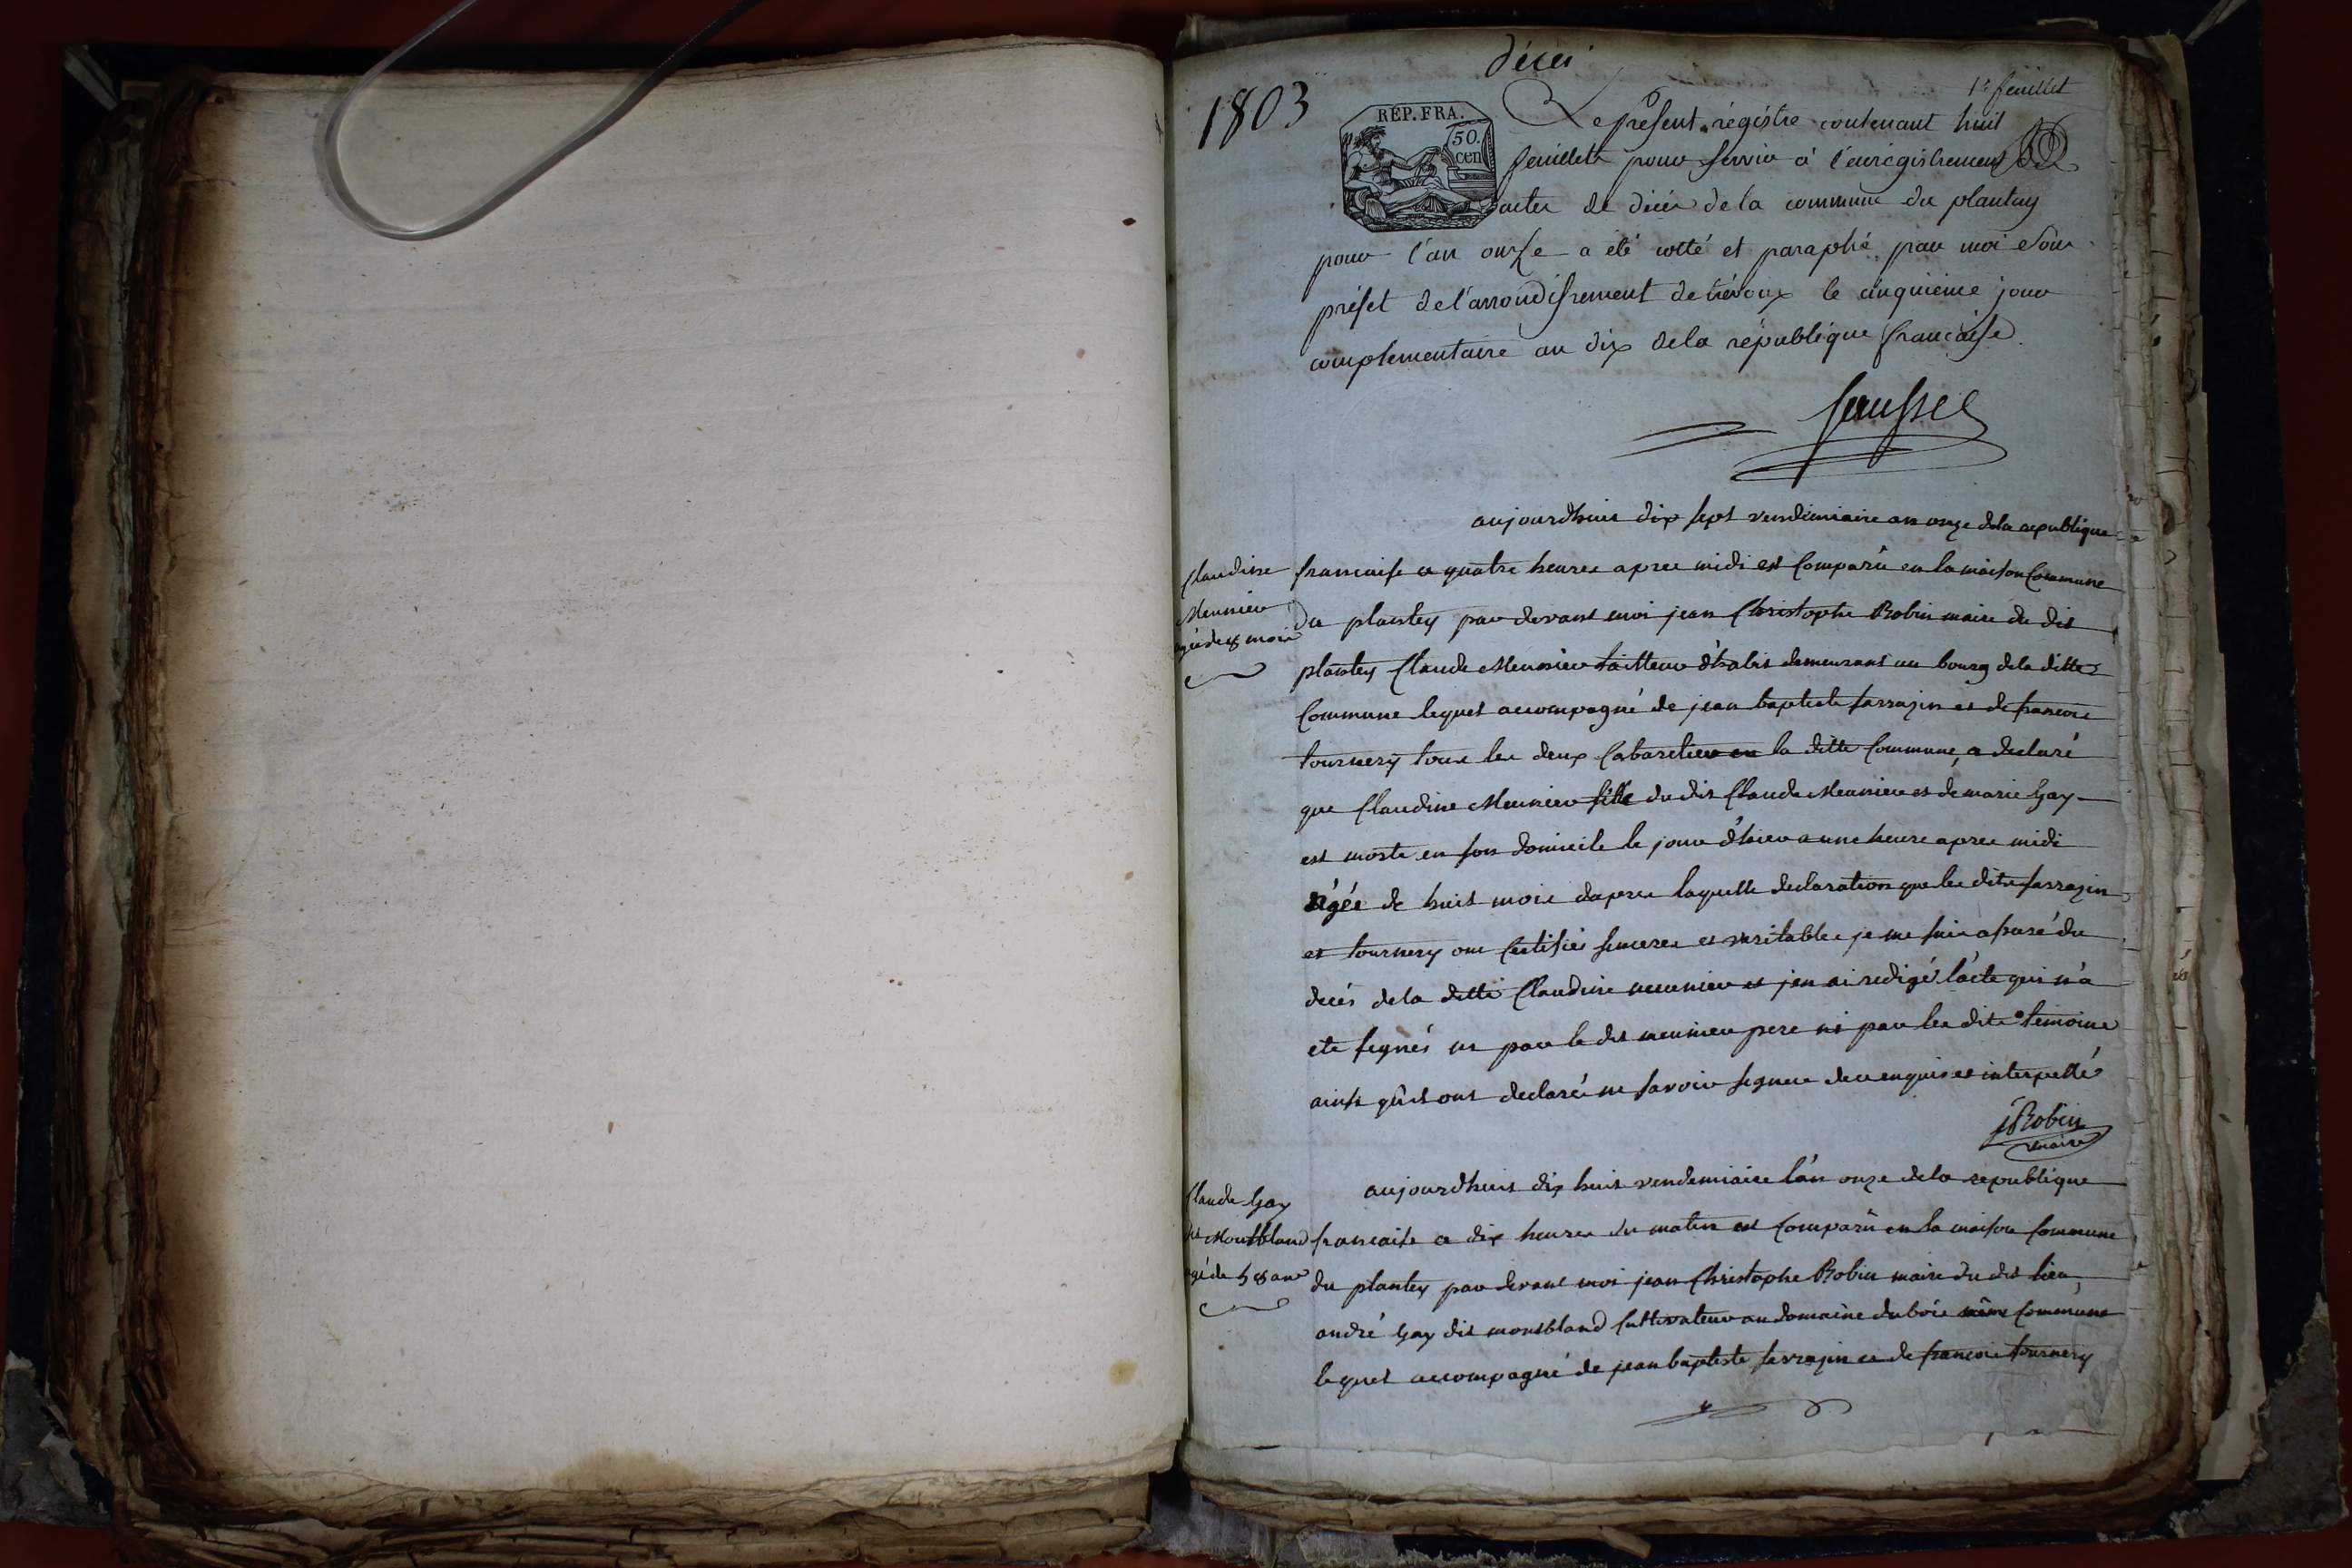 décés
1803
1er feuillet
REP. FRA.
50.
cen
Le présent régistre contenant huit
feuillets pour servir à l'enrégistrement des
actes de décès de la commune du plantay
pour l'an onze a été cotté et paraphé par moi sous
préfet de l'arrondissement de trévoux le cinquième jour
complementaire an dix de la république française.
aujourdhuis dix sept vendemiaire an onze dela republique
francaise a quatre heures apres midi est Comparû en la maison Commune
du plantey par devant moi jean Christophe Robin maire du dit
plantey Claude Meunier tailleur d'habit demeurant au bourg dela ditte
Commune lequel accompagné de jean baptiste sarrazin et de francois
tournery tous les deux Cabaretiers en la ditte Commune, a declaré
que Claudine Meunier fille du dit Claude Meunier et de marie Gay
est morte en son domicile le jour d'hier a une heure apres midi
agée de huit mois dapres laquelle declaration que les dits sarrazin
et tournery ont Certifiés sinceres et veritables je me suis assuré du
decés dela ditte Claudine meunier et j'en ai redigé lacte qui n'a
ete signés ni par le dit meunier pere ni par les dits temoins
ainsi qu'ils ont declarés ne savoir signer de ce enquis et interpellé
Claudine
Meunier
agée de 8 mois
jRobin
maire
aujourdhuis dix huit vendemiaire l'an onze dela republique
francaise a dix heures du matin est Comparû en la maison Commune
du plantey par devant moi jean Christophe Robin maire du dit lieu,
andré Gay dit montbland Cultivateur au domaine du bois même Commune
lequel accompagné de jean baptiste sarrazin et de francois tournery
Claude Gay
Montbland